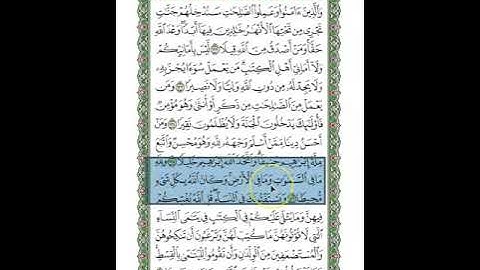 وَٱلَّذِينَ ءَامَنُوا۟ وَعَمِلُوا۟ ٱلصَّٰلِحَٰتِ سَنُدْخِلُهُمْ جَنَّٰتٍ
تَجْرِى مِن تَحْتِهَا ٱلْأَنْهَٰرُ خَٰلِدِينَ فِيهَآ أَبَدًا وَعْدَ ٱللَّهِ
حَقًّا وَمَنْ أَصْدَقُ مِنَ ٱللَّهِ قِيلًا ١٢٢ لَّيْسَ بِأَمَانِيِّكُمْ
وَلَآ أَمَانِىِّ أَهْلِ ٱلْكِتَٰبِ مَن يَعْمَلْ سُوٓءًا يُجْزَ بِهِۦ
وَلَا يَجِدْ لَهُۥ مِن دُونِ ٱللَّهِ وَلِيًّا وَلَا نَصِيرًا ١٢٣ وَمَن
يَعْمَلْ مِنَ ٱلصَّٰلِحَٰتِ مِن ذَكَرٍ أَوْ أُنثَىٰ وَهُوَ مُؤْمِنٌ
فَأُو۟لَٰٓئِكَ يَدْخُلُونَ ٱلْجَنَّةَ وَلَا يُظْلَمُونَ نَقِيرًا ١٢٤ وَمَنْ
أَحْسَنُ دِينًا مِّمَّنْ أَسْلَمَ وَجْهَهُۥ لِلَّهِ وَهُوَ مُحْسِنٌ وَٱتَّبَعَ
مِلَّةَ إِبْرَٰهِيمَ حَنِيفًا وَٱتَّخَذَ ٱللَّهُ إِبْرَٰهِيمَ خَلِيلًا ١٢٥ وَلِلَّهِ
مَا فِى ٱلسَّمَٰوَٰتِ وَمَا فِى ٱلْأَرْضِ وَكَانَ ٱللَّهُ بِكُلِّ شَىْءٍ
مُّحِيطًا ١٢٦ وَيَسْتَفْتُونَكَ فِى ٱلنِّسَآءِ قُلِ ٱللَّهُ يُفْتِيكُمْ
فِيهِنَّ وَمَا يُتْلَىٰ عَلَيْكُمْ فِى ٱلْكِتَٰبِ فِى يَتَٰمَى ٱلنِّسَآءِ
ٱلَّٰتِى لَا تُؤْتُونَهُنَّ مَا كُتِبَ لَهُنَّ وَتَرْغَبُونَ أَن تَنكِحُوهُنَّ
وَٱلْمُسْتَضْعَفِينَ مِنَ ٱلْوِلْدَٰنِ وَأَن تَقُومُوا۟ لِلْيَتَٰمَىٰ بِٱلْقِسْطِ